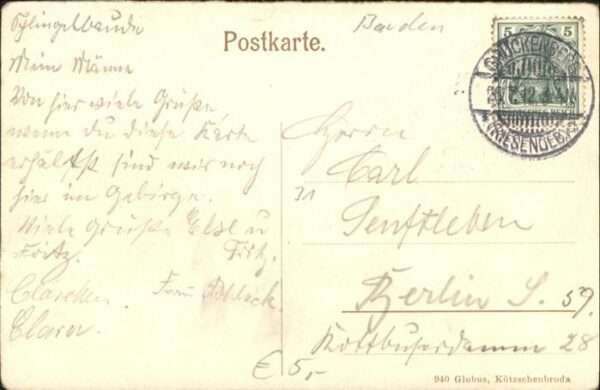 Schlingelbaude
Mein Männe
Von hier viele Grüße
wenn du diese Karte
erhältst sind wir noch
hier im Gebirge.
Viele Grüße Else u
Fritz. Fritz.
Clärchen. Frau
Clara.
Bauden
Postkarte.
5 5
BRÜCKENBERG
(RIESENGEB.)
Herrn
Carl
31
Senftleben
Berlin S. 59.
Kottbuserdamm 28
€ 5,-
940 Globus, Kötzschenbroda